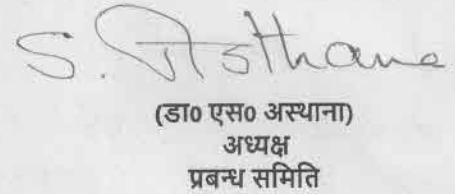 S. Asthana
(डा0 एस0 अस्थाना)
अध्यक्ष
प्रबन्ध समिति